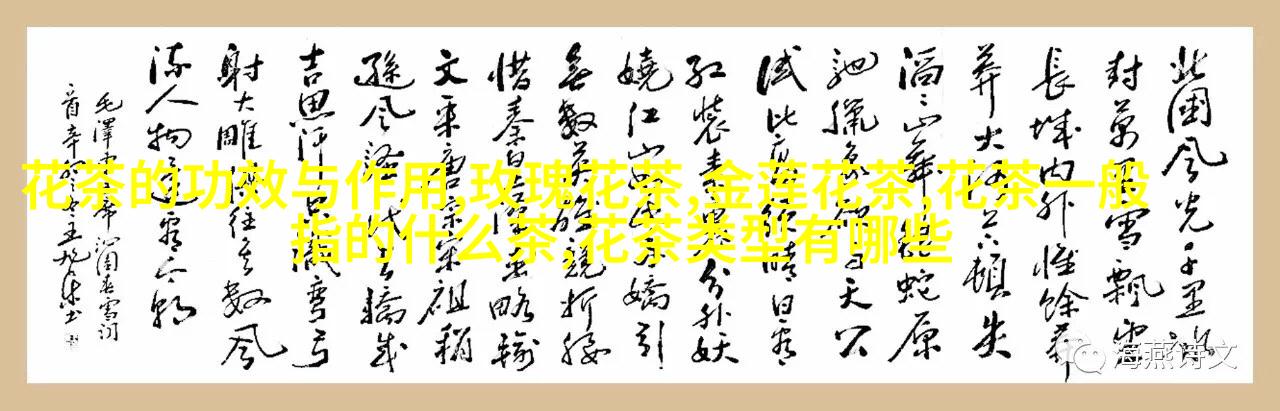 花茶的功效与作用,玫瑰花茶,金莲花茶,花茶一般
指的什么茶,花茶类型有哪些
北國风光千里冰
封萬里雪飄望
長城内外惟馀莽
莽大河上下顿失
滔滔山舞银蛇原
驰臘象欲与天公
试比高须晴日看
红装素裹分外妖
娆江山如此多嬌引
无數英雄競折腰
惜秦皇漢武略输
文采唐宗宋祖稍
遜风骚一代天驕成
吉思汗只識彎弓
射大雕俱往矣數风
流人物还看今朝
毛澤东主席沁園春雪词
海燕诗文